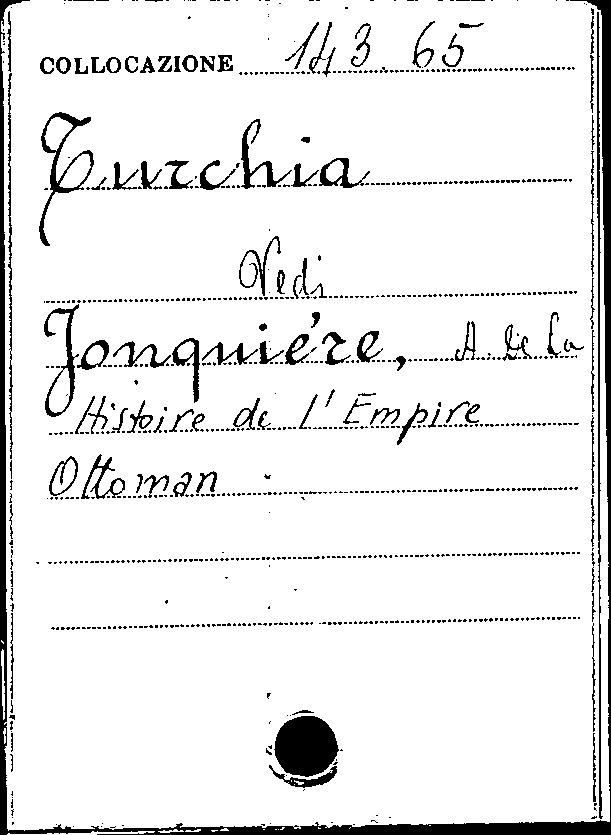 COLLOCAZIONE 143.65
Turchia
Vedi
Jonquiére, A. de la
Histoire de l'Empire
Ottoman